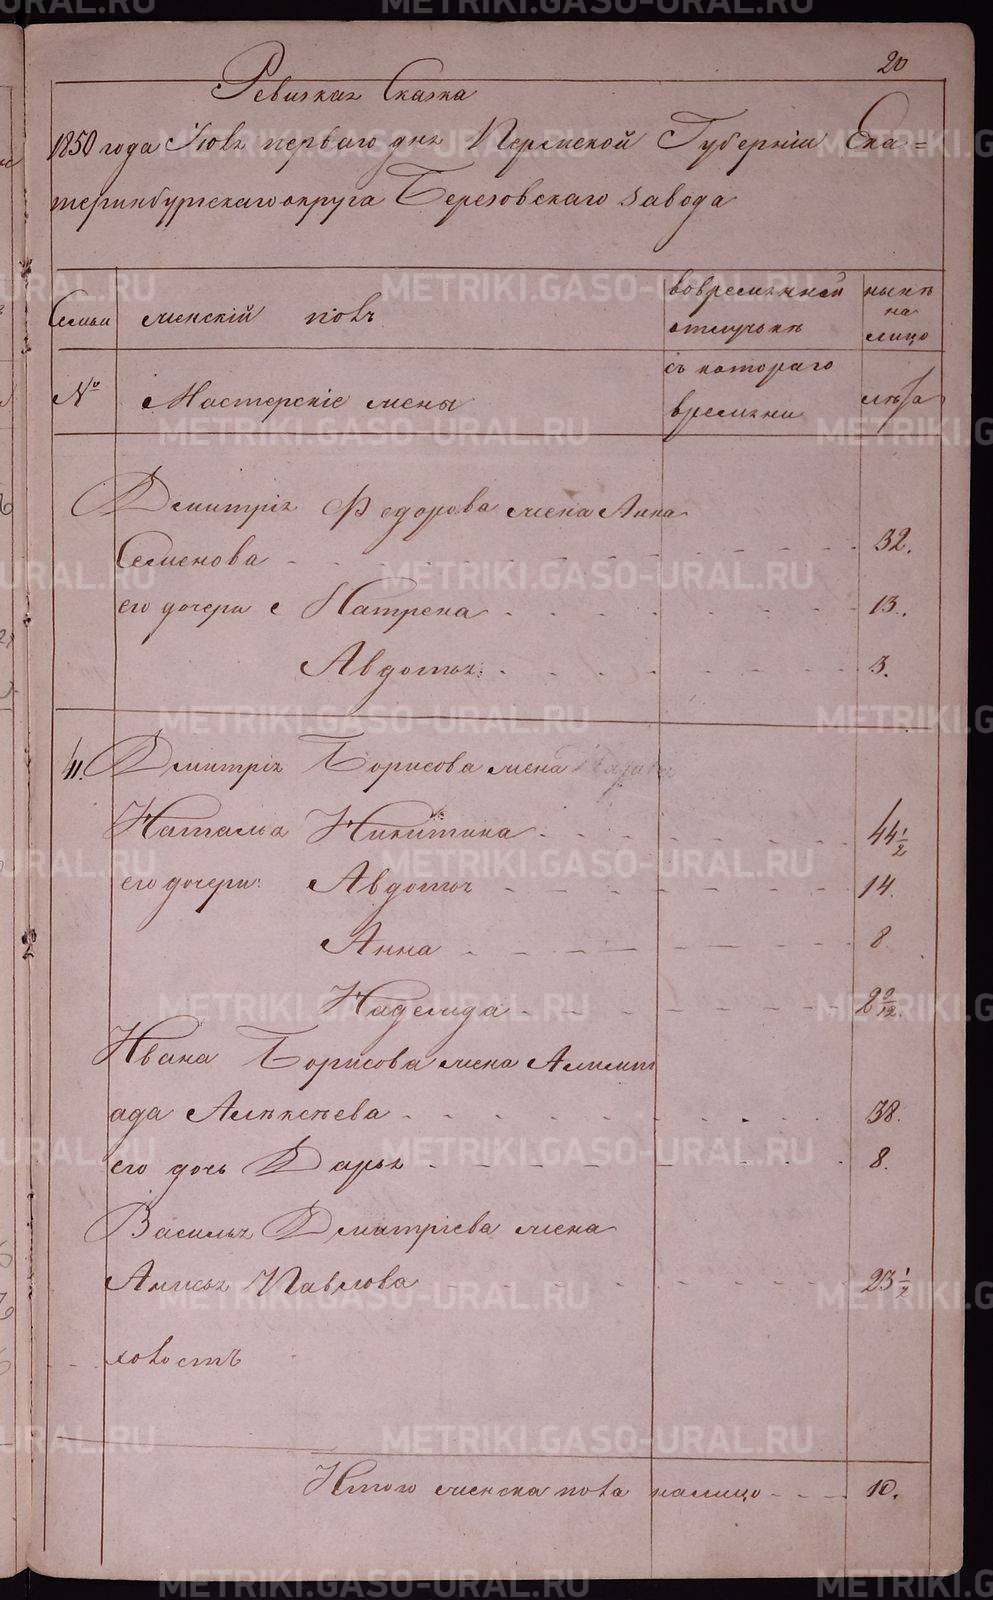 20
Ревизкая Сказка
1850 года Июля перваго дня Пермской Губерніи Ека=
теринбургскаго округа Березовскаго завода
Семьи женскій полъ вовременной отлучькѣ нынѣ на лицо
№ Мастерскіе жены съ котораго времяни лѣта
Дмитрія Федорова жена Анна
Семенова 32.
его дочери Матрена 13.
Авдотья 3.
Дмитрія Борисова жена
Наталья Никитина 44 1/2
его дочери: Авдотья 14.
Анна 8
Надежда 2 9/12
Ивана Борисова жена
Алѣксѣева 38.
его дочь Дарья 8.
Василья Дмитріева жена
Анисья Павлова 23 1/2
Итого женска пола налицо 10.
METRIKI.GASO-URAL.RU